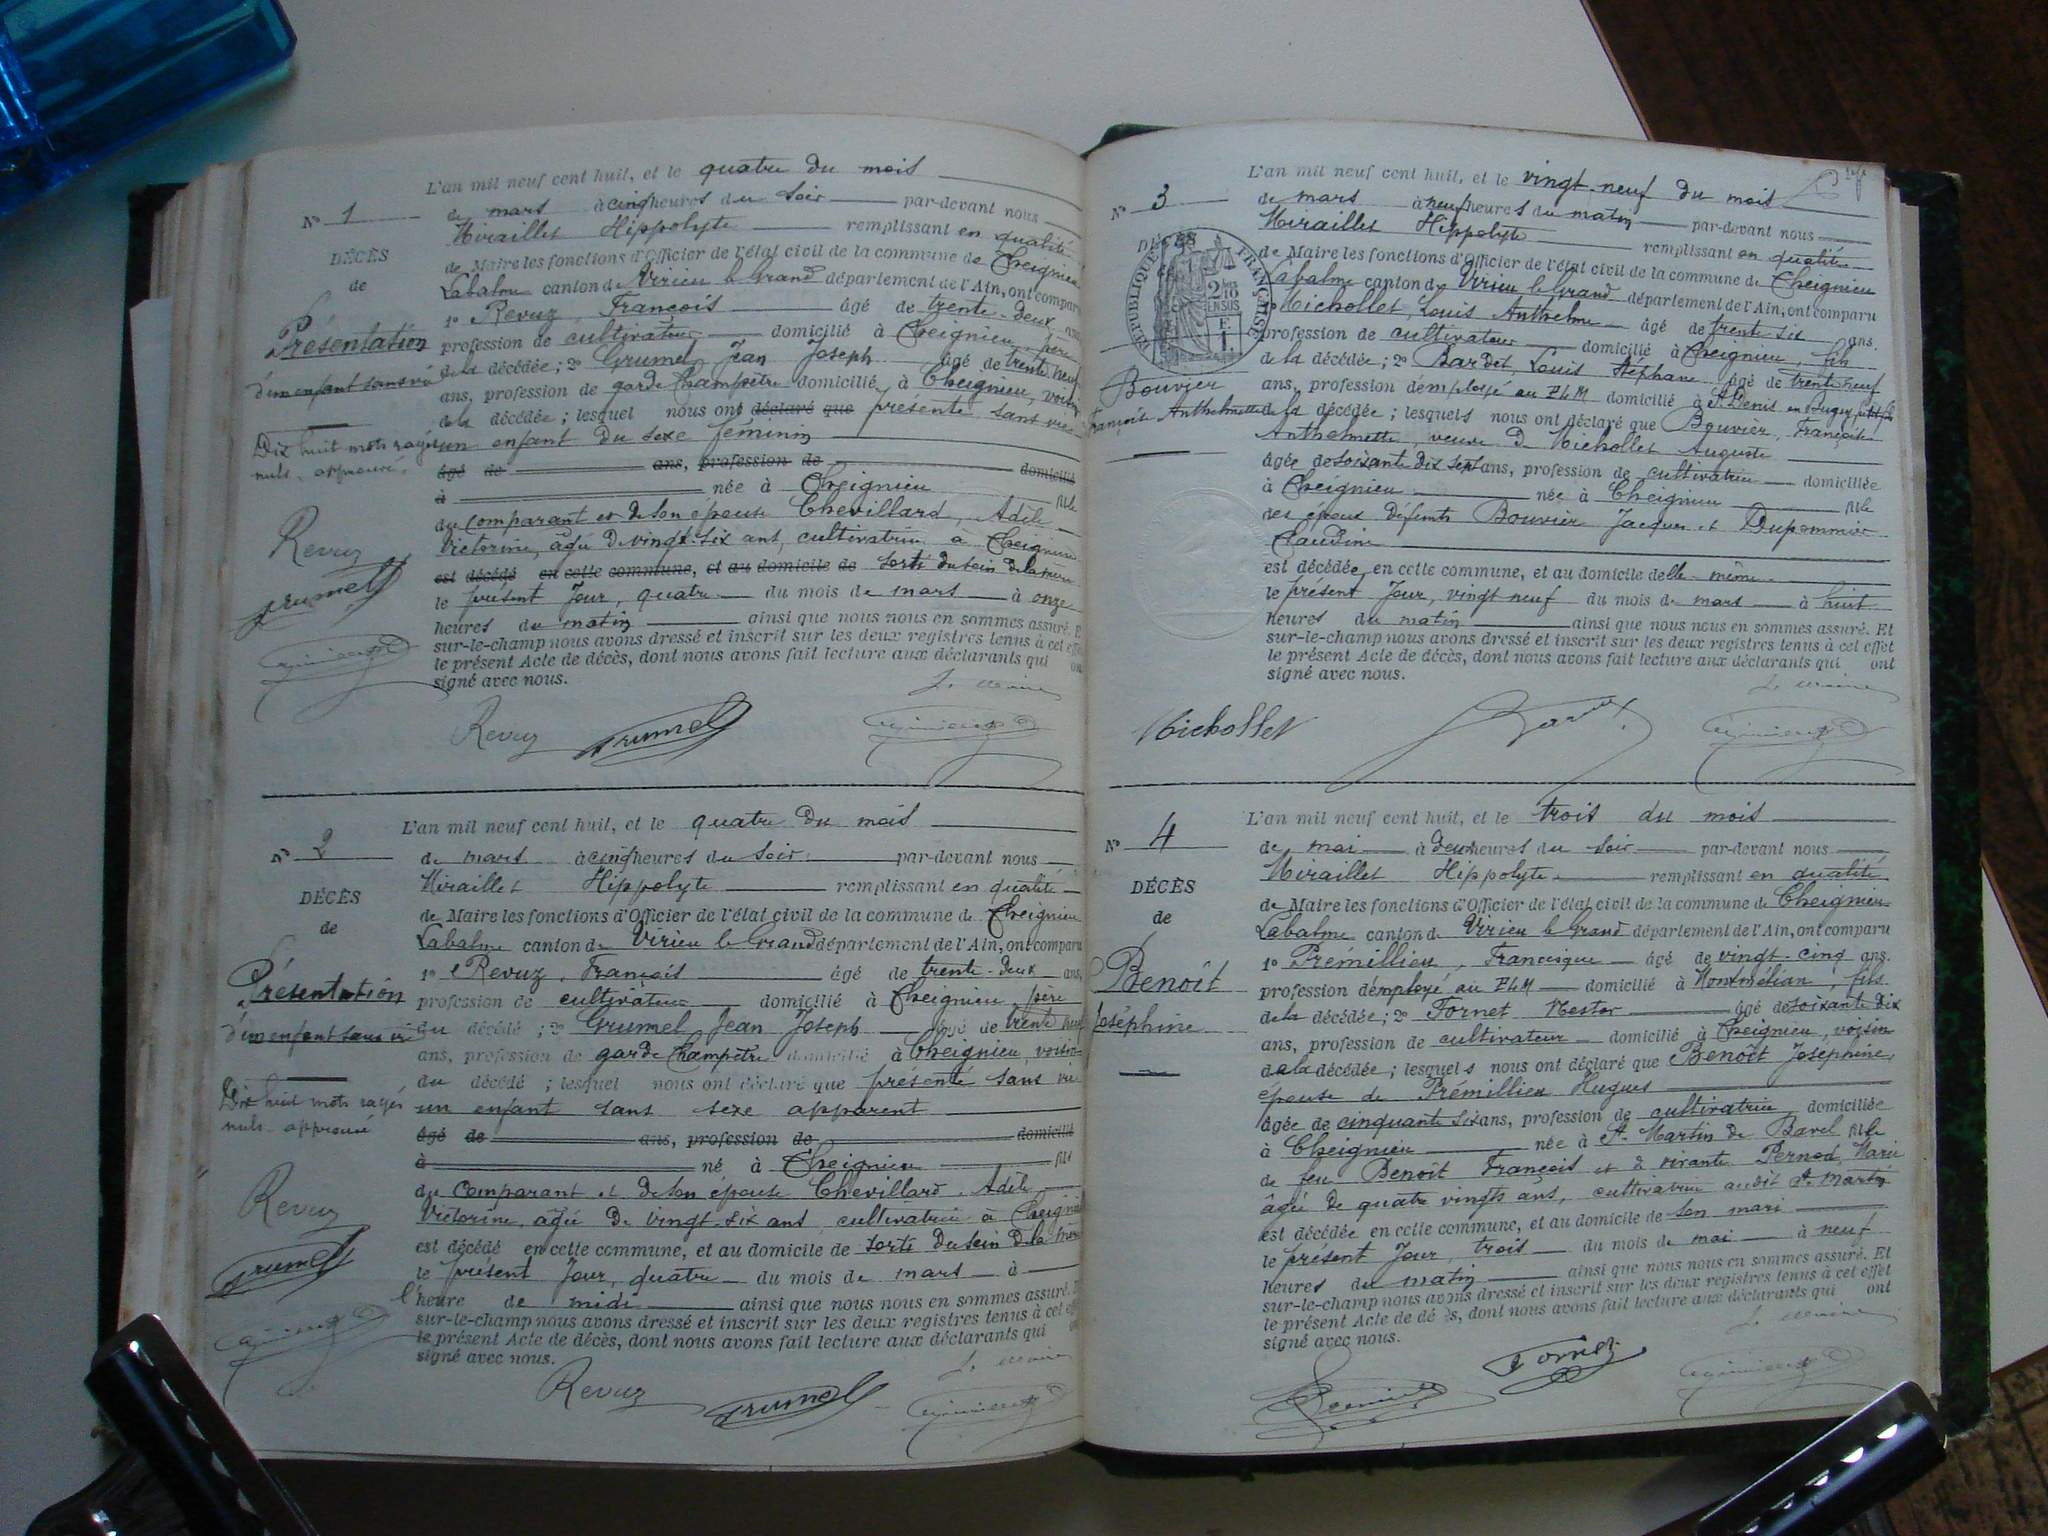 L'an mil neuf cent huit, et le quatre du mois
N° 1
de mars à cinq heures du soir par-devant nous
Miraillet Hippolyte remplissant en qualité
DÉCÈS
de Maire les fonctions d'Officier de l'état civil de la commune de Cheignieu
de
Labalme canton de Virieu le Grand département de l'Ain, ont comparu
1° Revuz, François âgé de trente-deux ans
Présentation
profession de cultivateur domicilié à Cheignieu, père
d'un enfant sans vie
de la décédée ; 2° Grumel Jean Joseph âgé de trente neuf
ans, profession de garde champêtre domicilié à Cheignieu, voisin
de la décédée ; lesquel nous ont déclaré que présenté sans vie
Dix huit mots rayés
un enfant du sexe féminin
nuls. approuvé.
âgé de ans, profession de domicilié
à née à Cheignieu fille
du comparant et de son épouse Chevillard, Adèle
Revuz
Victorine, âgée de vingt-six ans, cultivatrice à Cheignieu
est décédé en cette commune, et au domicile de sorti du sein de la mère
Grumel
le présent jour, quatre du mois de mars à onze
heures du matin ainsi que nous nous en sommes assuré. E
sur-le-champ nous avons dressé et inscrit sur les deux registres tenus à cet effe
le présent Acte de décès, dont nous avons fait lecture aux déclarants qui on
signé avec nous.
Le Maire
Revuz Grumel
L'an mil neuf cent huit, et le quatre du mois
N° 2
de mars à cinq heures du soir par-devant nous
Miraillet Hippolyte remplissant en qualité
DÉCÈS
de Maire les fonctions d'Officier de l'état civil de la commune de Cheignieu
de
Labalme canton de Virieu le Grand département de l'Ain, ont comparu
1° Revuz, François âgé de trente-deux ans,
Présentation
profession de cultivateur domicilié à Cheignieu père
d'un enfant sans vie
du décédé ; 2° Grumel Jean Joseph âgé de trente neuf
ans, profession de garde champêtre domicilié à Cheignieu, voisin
du décédé ; lesquel nous ont déclaré que présenté sans vie
Dix huit mots rayés
un enfant sans sexe apparent
nuls approuvé
âgé de ans, profession de domicilié
à né à Cheignieu fils
du comparant et de son épouse Chevillard, Adèle
Revuz
Victorine, âgée de vingt-six ans cultivatrice à Cheignieu
est décédé en cette commune, et au domicile de sorti du sein de la mère
Grumel
le présent jour, quatre du mois de mars à
l'heure de midi ainsi que nous nous en sommes assuré.
sur-le-champ nous avons dressé et inscrit sur les deux registres tenus à cet eff
le présent Acte de décès, dont nous avons fait lecture aux déclarants qui
signé avec nous.
Le Maire
Revuz Grumel
L'an mil neuf cent huit, et le vingt-neuf du mois
N° 3
de mars à neuf heures du matin par-devant nous
Miraillet Hippolyte remplissant en qualité
DÉCÈS
de Maire les fonctions d'Officier de l'état civil de la commune de Cheignieu
RÉPUBLIQUE FRANÇAISE
2/10 EN SUS
Labalme canton de Virieu le Grand département de l'Ain, ont comparu
1° Michollet, Louis Anthelme âgé de trente-six ans.
profession de cultivateur domicilié à Cheignieu, fils
de la décédée ; 2° Bardet, Louis Stéphane âgé de trente neuf
Bouvier
ans, profession d'employé au PLM domicilié à St Denis en Bugey, petit-fils
Françoise Anthelmette
de la décédée ; lesquels nous ont déclaré que Bouvier, Françoise
Anthelmette, veuve de Michollet Auguste
âgée de soixante dix sept ans, profession de cultivatrice domiciliée
à Cheignieu née à Cheignieu fille
des époux défunts Bouvier Jacques et Dupommier
Claudine
est décédée en cette commune, et au domicile d'elle-même
le présent jour, vingt neuf du mois de mars à huit
heures du matin ainsi que nous nous en sommes assuré. Et
sur-le-champ nous avons dressé et inscrit sur les deux registres tenus à cet effet
le présent Acte de décès, dont nous avons fait lecture aux déclarants qui ont
signé avec nous.
Le Maire
Michollet
L'an mil neuf cent huit, et le trois du mois
N° 4
de mai à deux heures du soir par-devant nous
Miraillet Hippolyte remplissant en qualité
DÉCÈS
de Maire les fonctions d'Officier de l'état civil de la commune de Cheignieu
de
Labalme canton de Virieu le Grand département de l'Ain, ont comparu
1° Prémillieu, Francisque âgé de vingt-cinq ans.
Benoît
profession d'employé au PLM domicilié à Montmélian, fils
Joséphine
de la décédée ; 2° Fornet Nestor âgé de soixante dix
ans, profession de cultivateur domicilié à Cheignieu, voisin
de la décédée ; lesquels nous ont déclaré que Benoît Joséphine,
épouse de Prémillieu Hugues
âgée de cinquante six ans, profession de cultivatrice domiciliée
à Cheignieu née à St-Martin de Bavel fille
de feu Benoît François et de vivante Pernod, Marie
âgée de quatre vingts ans, cultivatrice audit St Martin
est décédée en cette commune, et au domicile de son mari
le présent jour, trois du mois de mai à neuf
heures du matin ainsi que nous nous en sommes assuré. Et
sur-le-champ nous avons dressé et inscrit sur les deux registres tenus à cet effet
le présent Acte de décès, dont nous avons fait lecture aux déclarants qui ont
signé avec nous.
Le Maire
Fornet